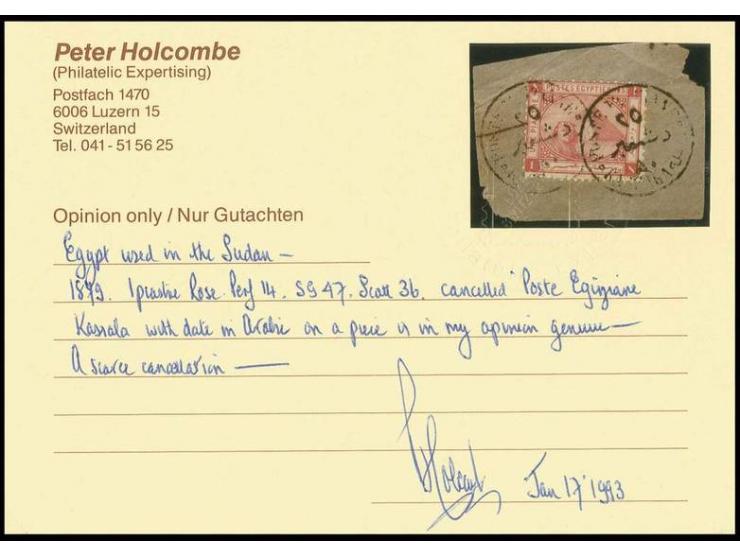 Peter Holcombe
(Philatelic Expertising)
Postfach 1470
6006 Luzern 15
Switzerland
Tel. 041 - 51 56 25
POSTES EGYPTIENNES
Opinion only / Nur Gutachten
Egypt used in the Sudan —
1879. 1 piastre Rose. Perf 14. SG 47. Scott 36. cancelled "Poste Egiziane
Kassala with date in Arabic on a piece is in my opinion genuine —
A scarce cancellation —
Jan 17 1993